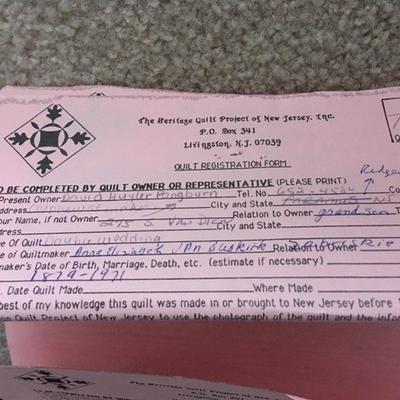 The Heritage Quilt Project of New Jersey, Inc.
P.O. Box 341
Livingston, N.J. 07039
QUILT REGISTRATION FORM
Ridgew
TO BE COMPLETED BY QUILT OWNER OR REPRESENTATIVE (PLEASE PRINT)
Present Owner David Huyler Pangburn Tel. No. 652-4534
Address City and State Paramus NJ
Your Name, if not Owner 275 S. Van Dien Relation to Owner grandson
Address City and State
Name Of Quilt Double Wedding
Name of Quiltmaker Anna Elizabeth Van Buskirk Relation to Owner
maker's Date of Birth, Marriage, Death, etc. (estimate if necessary)
1879-1971
Date Quilt Made Where Made
best of my knowledge this quilt was made in or brought to New Jersey before
Quilt Project of New Jersey to use the photograph of the quilt and the infor
The Heritage Quilt Project of New Jersey
P.O. Box